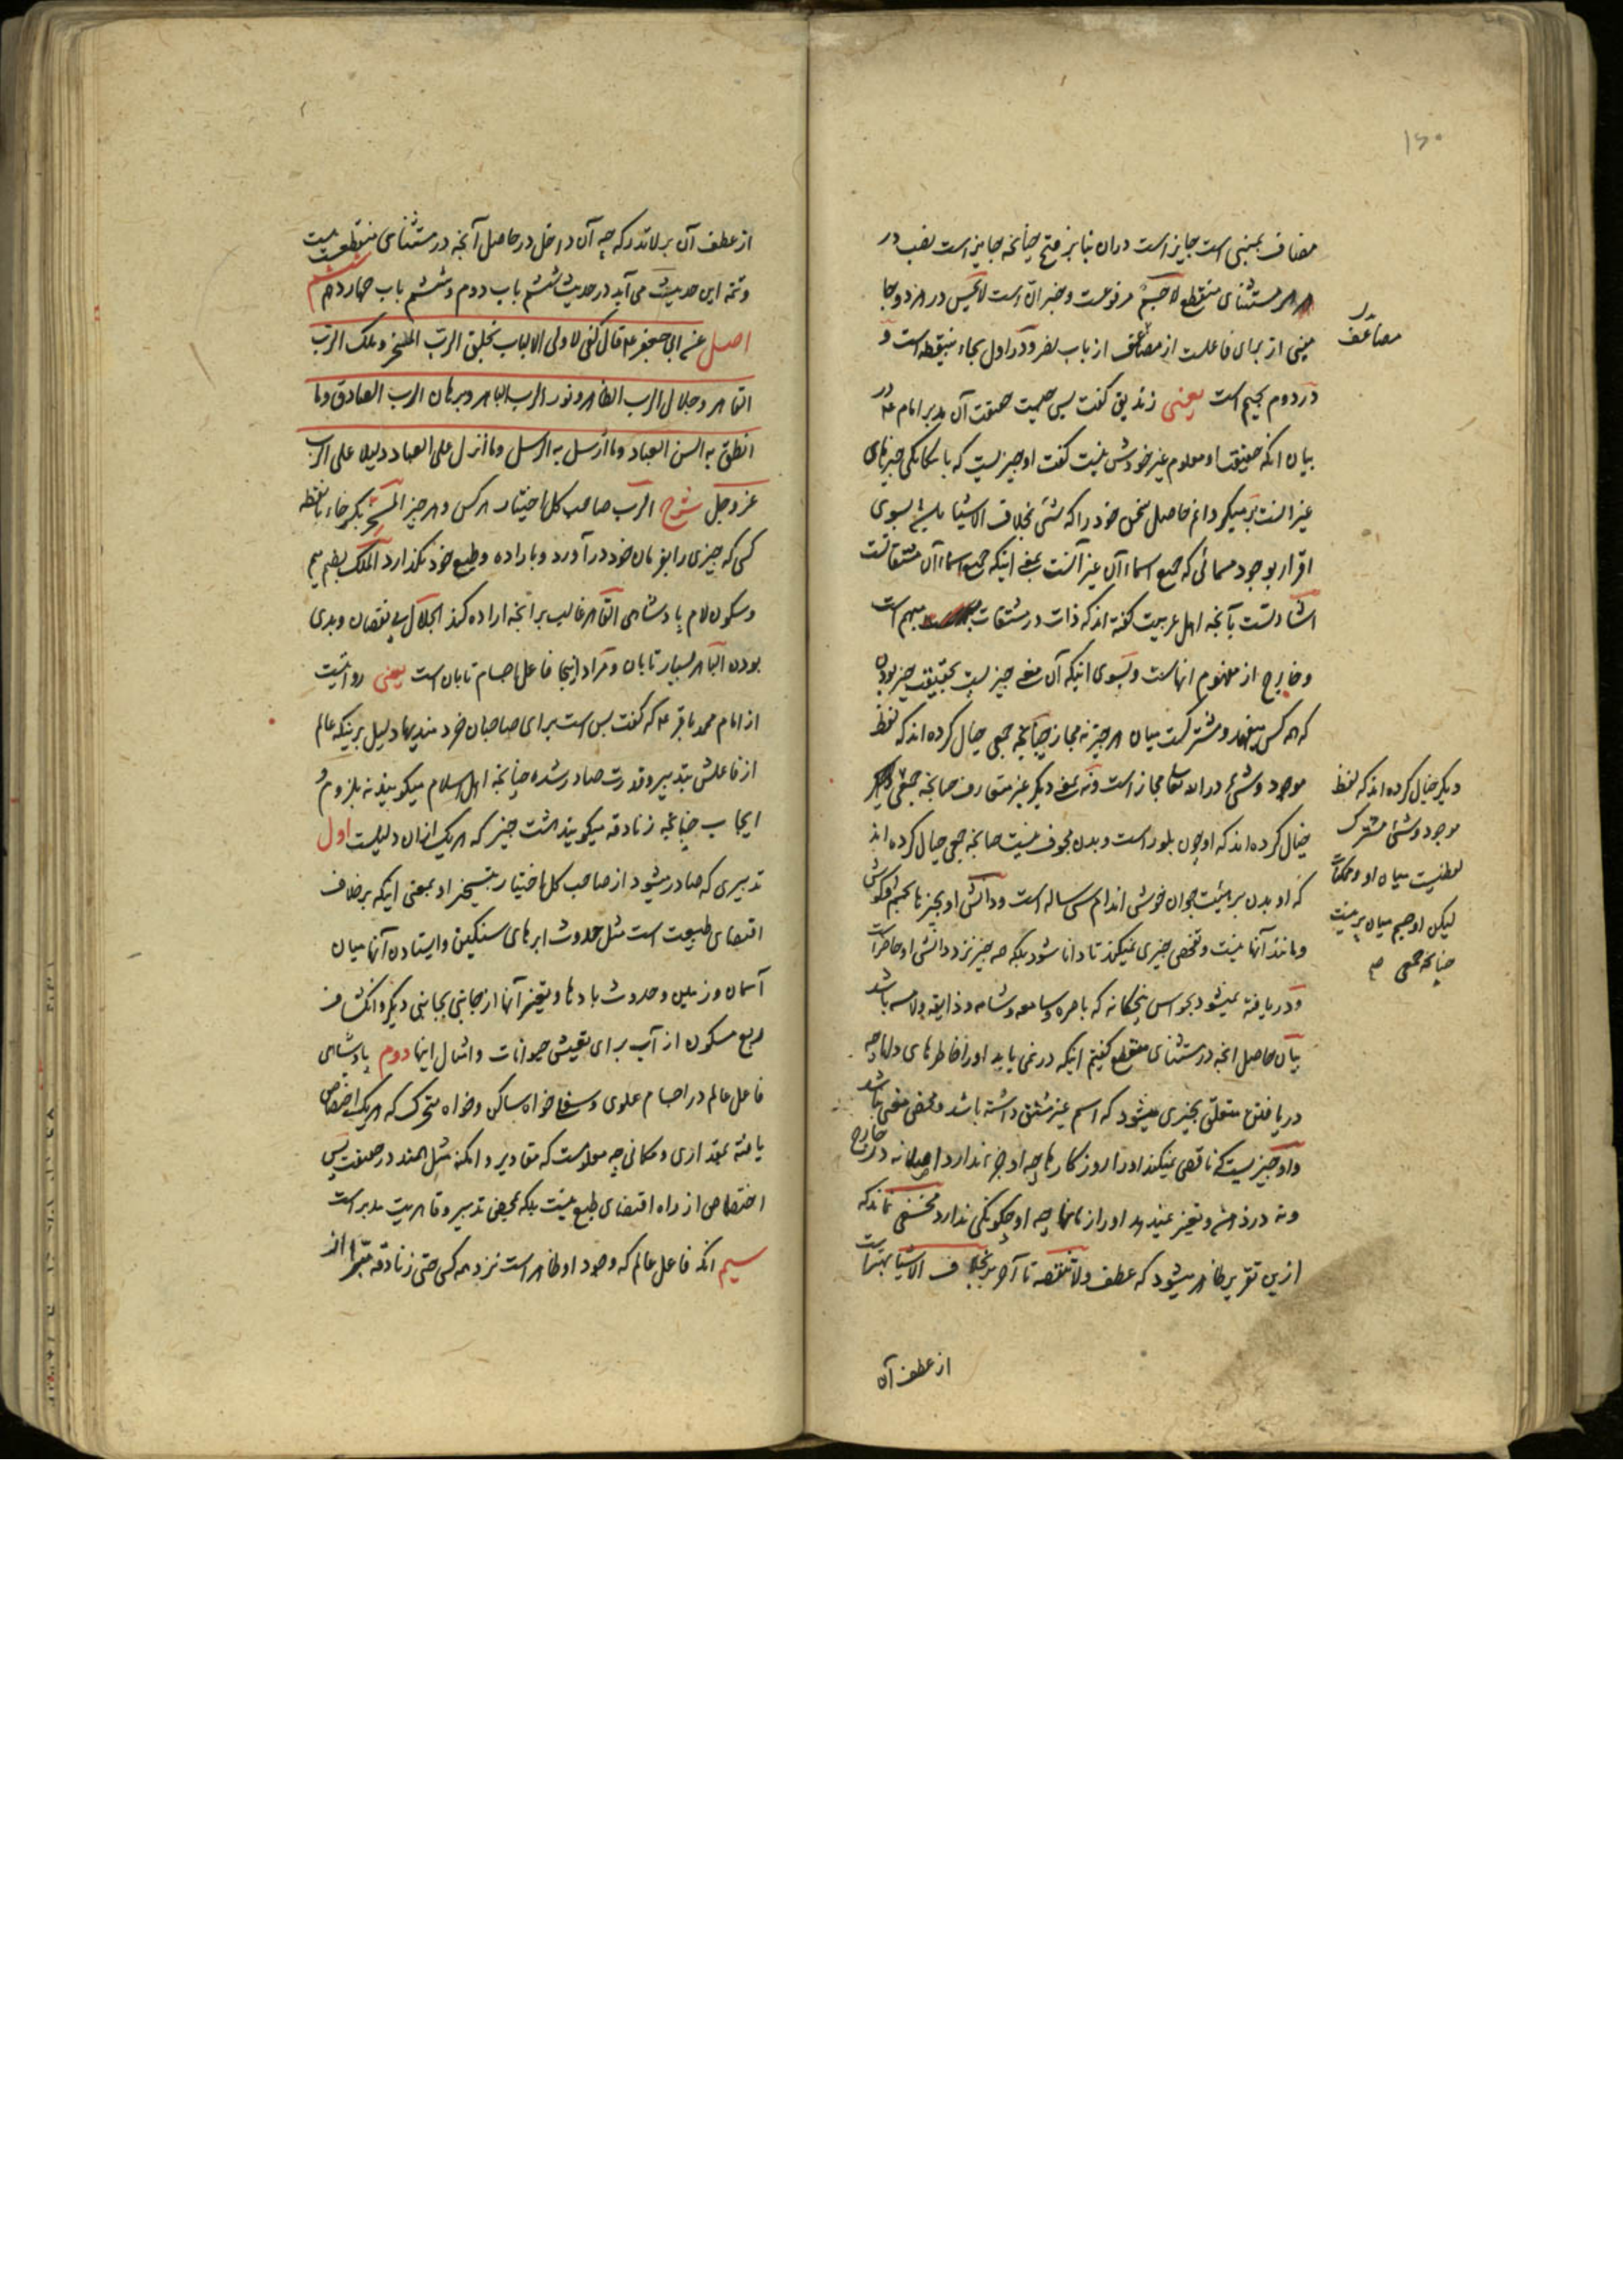 ۱۵۰
مضاف بمبنی است جایز است در ان بنا بر فتح چنانچه جایز است نصب در
مستثنای منقطع لا جسمٌ مرفوعست و خبر انّ است لا یحس در هر دو جا
مبنی از برای فاعلست از مضاعف از باب نصر و در اول بجاء بینقطه است و
در دوم بجیم است یعنی زندیق گفت پس چیست حقیقت آن مدبر امام ع در
بیان انکه حقیقت او معلوم غیر خودش نیست گفت او چیزیست که بایکانکی چیزهای
غیر انست برمیکردانم حاصل سخن خود را که شیٔ بخلاف الاشیاء باشد بسوی
اقرار بوجود مسمائی که جمیع اسماء آن غیر آنست بمعنی اینکه جمیع اسماء آن مشتقاتست
اشارتست بآنچه اهل عربیت گفته اند که ذات در مشتقات مبهم است
و خارج از مفهوم انهاست و بسوی اینکه آن معنی چیزیست بحقیقت چیز بودن
که همه کس میفهمد و مشترکست میان هر چیز نه مجاز چنانچه جمعی خیال کرده اند که لفظ
موجود و شیٔ در الله تعالی مجاز است و نه بمعنی دیکر غیر متعارف چنانچه جمعی
خیال کرده اند که او چون بلور است و بدن مجوف نیست چنانچه جمعی خیال کرده اند
که او بدن بر هیئت جوان خوشی اندام سی ساله است و دانش او بچیزها بچشم و کوش
و مانند آنها نیست و تفحص چیزی نمیکند تا دانا شود بلکه همه چیز نزد دانش او حاضر است
و دریافته نمیشود بحواس پنجکانه که باصره و سامعه و شامه و ذایقه و لامسه باشد
بیان حاصل انچه در مستثنای منقطع گفتیم اینکه در نمی یابد او را خاطرهای دلها چه
دریافتن متعلق بچیزی میشود که اسم غیر مشتق داشته باشد و محض معنی نباشد
و او چیزیست که ناقص نمیکند او را روزکارها چه او جزء ندارد اصلا نه در خارج
و نه در ذهن و تغییر نمیدهد او را زمانها چه او چکونکی ندارد مخفی نماند که
ازین تقریر ظاهر میشود که عطف ولا تنقصه تا آخر بر بخلاف الاشیاء بهتر است
از عطف آن
مضاعف
دیکر خیال کرده اند که لفظ
موجود و شیٔ مشترک
لفظیست میان او و ممکنات
لیکن او جسم میان پر نیست
چنانچه جمعی صح
از عطف آن بر لا تدرکه چه آن داخل در حاصل آنچه در مستثنای منقطعست نیست
و تتمه این حدیث می آید در حدیث ششم باب دوم و ششم باب چهاردهم ششم
اصل عن ابی جعفر ع قال کفی لاولی الالباب بخلق الرب المسخر و ملک الرب
القاهر و جلال الرب الظاهر و نور الرب الباهر و برهان الرب الصادق و ما
انطق به السن العباد و ما ارسل به الرسل و ما انزل علی العباد دلیلا علی الرب
عز و جل شرح الرب صاحب کل اختیار هر کس و هر چیز المسخر بکسر خاء با نقطه
کسی که چیزی را بفرمان خود در آورد و باراده و طبع خود نکذارد الملک بضم میم
و سکون لام پادشاهی القاهر غالب بر انچه اراده کند الجلال بی نقصان و بدی
بودن الباهر بسیار تابان و مراد اینجا فاعل اجسام تابان است یعنی روایتست
از امام محمد باقر ع که گفت بس است برای صاحبان خردمندیها دلیل بر اینکه عالم
از فاعلش بتدبیر و قدرت صادر شده چنانچه اهل اسلام میکویند نه بلزوم و
ایجاب چنانچه زنادقه میکویند هشت چیز که هر یک از ان دلیلست اول
تدبیری که صادر میشود از صاحب کل اختیار بتسخیر او بمعنی اینکه بر خلاف
اقتضای طبیعت است مثل حدوث ابرهای سنکین و ایستادن آنها میان
آسمان و زمین و حدوث بادها و تغییر آنها از جانبی بجانبی دیکر و انکشاف
ربع مسکون از آب برای تعیش حیوانات و امثال اینها دوم پادشاهی
فاعل عالم در اجسام علوی و سفلی خواه ساکن و خواه متحرک که هر یک اختصاص
یافته بمقداری و مکانی چه معلومست که مقادیر و امکنه مثل همند در حقیقت پس
اختصاص از راه اقتضای طبع نیست بلکه بمحض تدبیر و قاهریت مدبر است
سیم انکه فاعل عالم که وجود او ظاهر است نزد همه کس حتی زنادقه